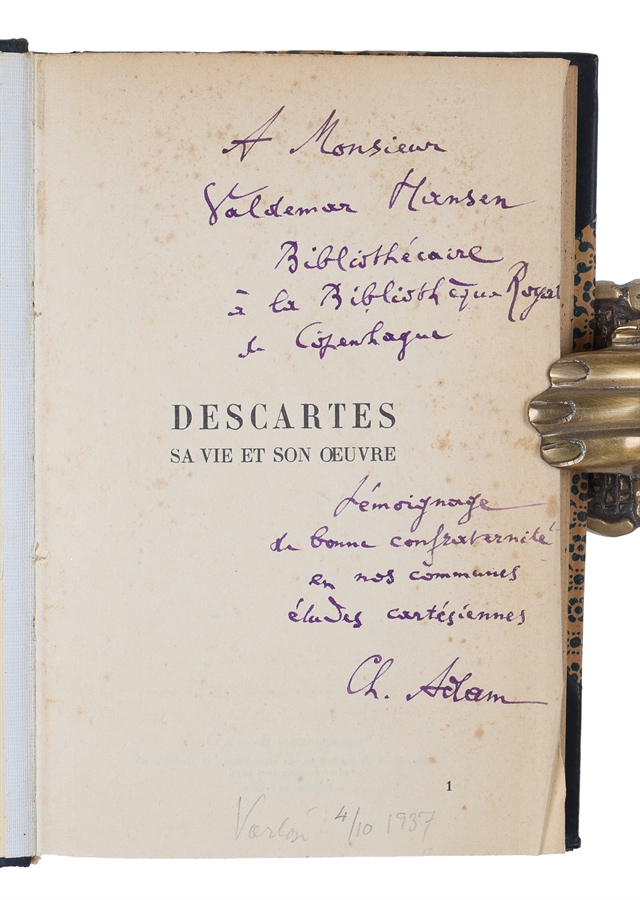 A Monsieur
Valdemar Hansen
Bibliothécaire
à la Bibliothèque Royale
de Copenhague
DESCARTES
SA VIE ET SON ŒUVRE
témoignage
de bonne confraternité
en nos communes
études cartésiennes
Ch. Adam
1
4/10 1937